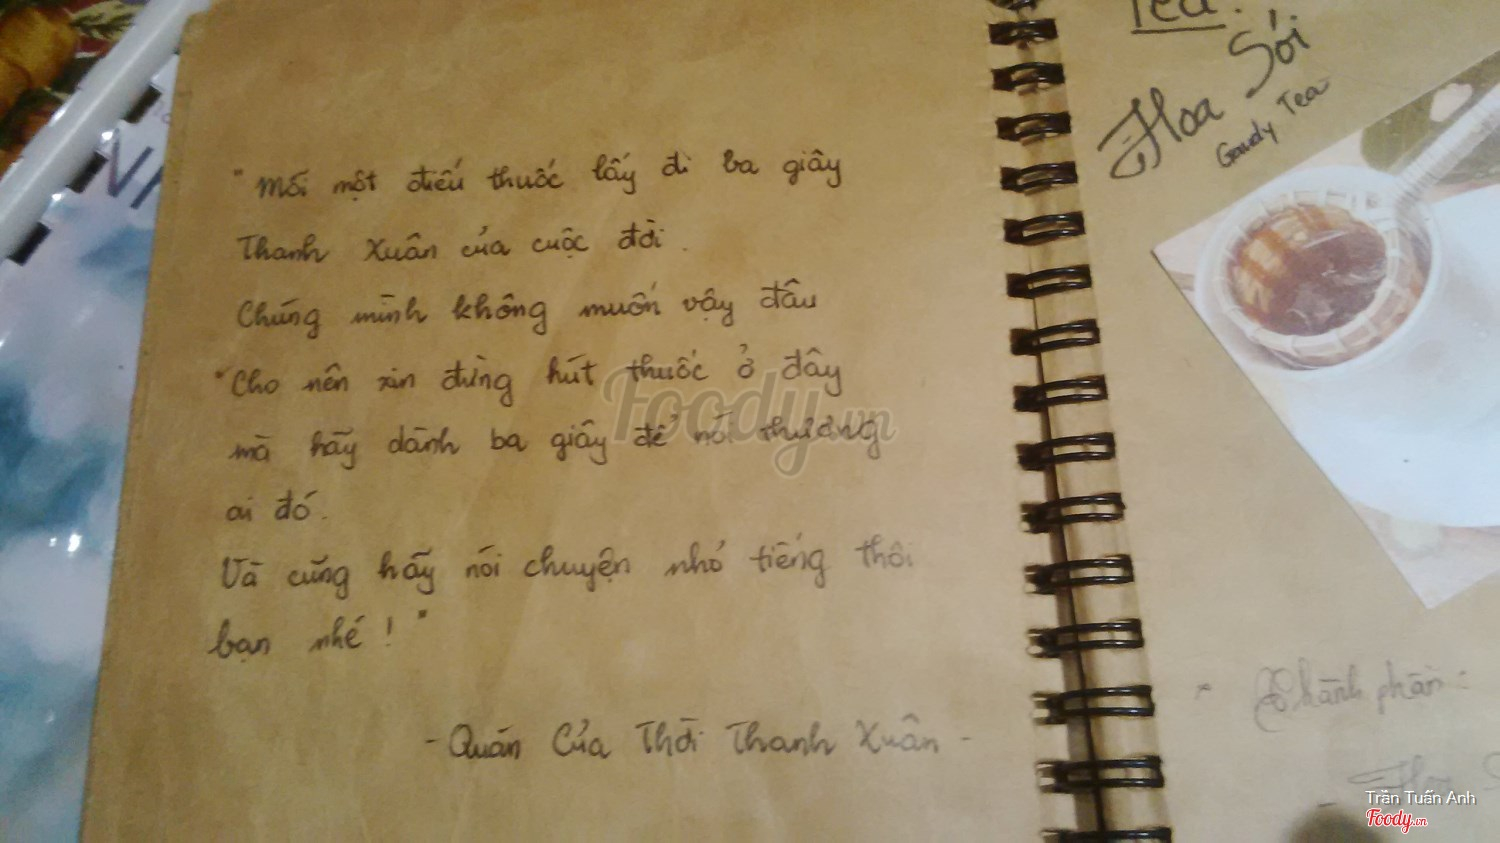 "Mỗi một điếu thuốc lấy đi ba giây
Thanh Xuân của cuộc đời.
Chúng mình không muốn vậy đâu
"Cho nên xin đừng hút thuốc ở đây
mà hãy dành ba giây để nói thương
ai đó.
Và cũng hãy nói chuyện nhỏ tiếng thôi
bạn nhé!"
- Quán Của Thời Thanh Xuân -
Tea:
Hoa Sói
Gaudy Tea
Thành phần:
- Hoa
Foody.vn
Trần Tuấn Anh
Foody.vn